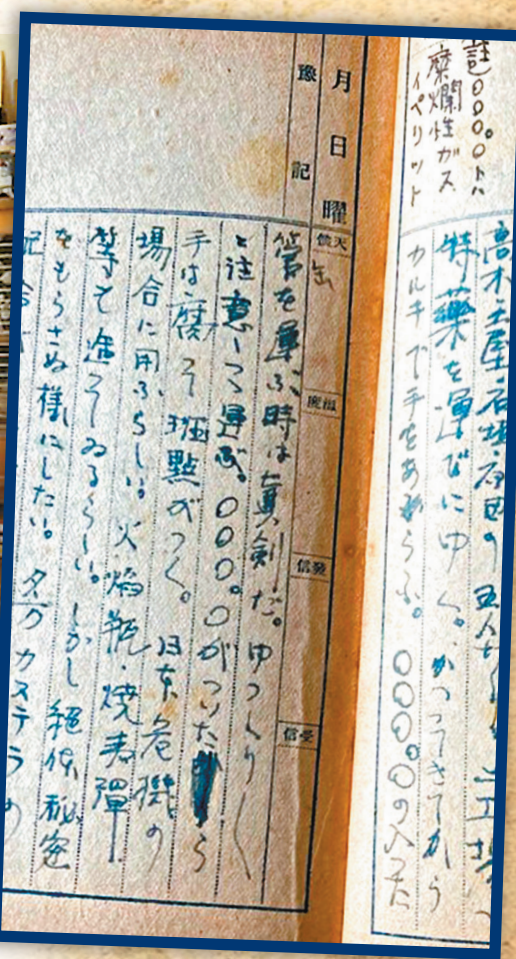 註〇〇〇〇トハ
糜爛性ガス
イペリット
高木・土屋・石垣・石田の五人
特薬を運びにゆく。かつってきてから
カルキで手をあらふ。〇〇〇〇の入つた
月 日 曜
豫記
天候
温度
発信
受信
缶
管を運ぶ時は真剣だ。ゆつくりし
と注意して運ぶ。〇〇〇。〇がついたら
手は腐って斑點がつく。日本危機の
場合に用ふらしい。火焔瓶・焼夷彈
等も造ってゐるらしい。しかし絶体秘密
をもらさぬ様にしたい。夕方カステラ
配合